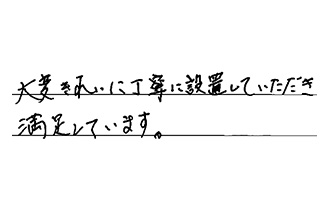 大変きれいに丁寧に設置していただき
満足しています。